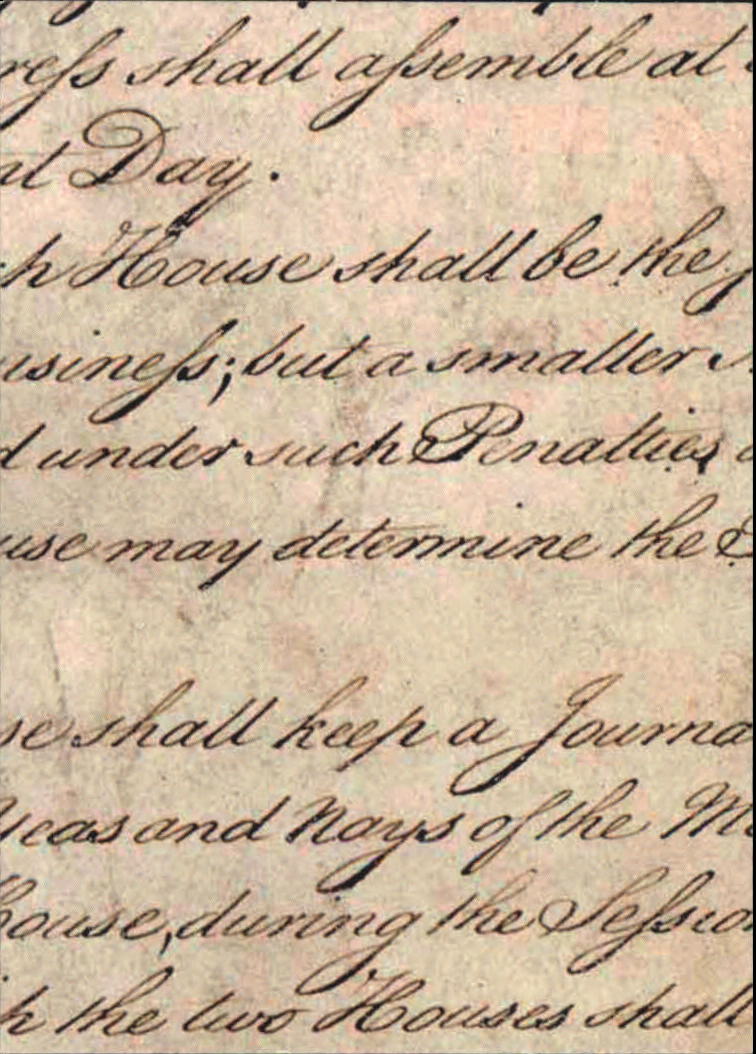 reſs shall aſsemble at
nt Day.
h House shall be the
usineſs; but a smaller
d under such Penalties
use may determine the
se shall keep a Journa
Yeas and Nays of the Me
house, during the Seſsion
h the two Houses shall